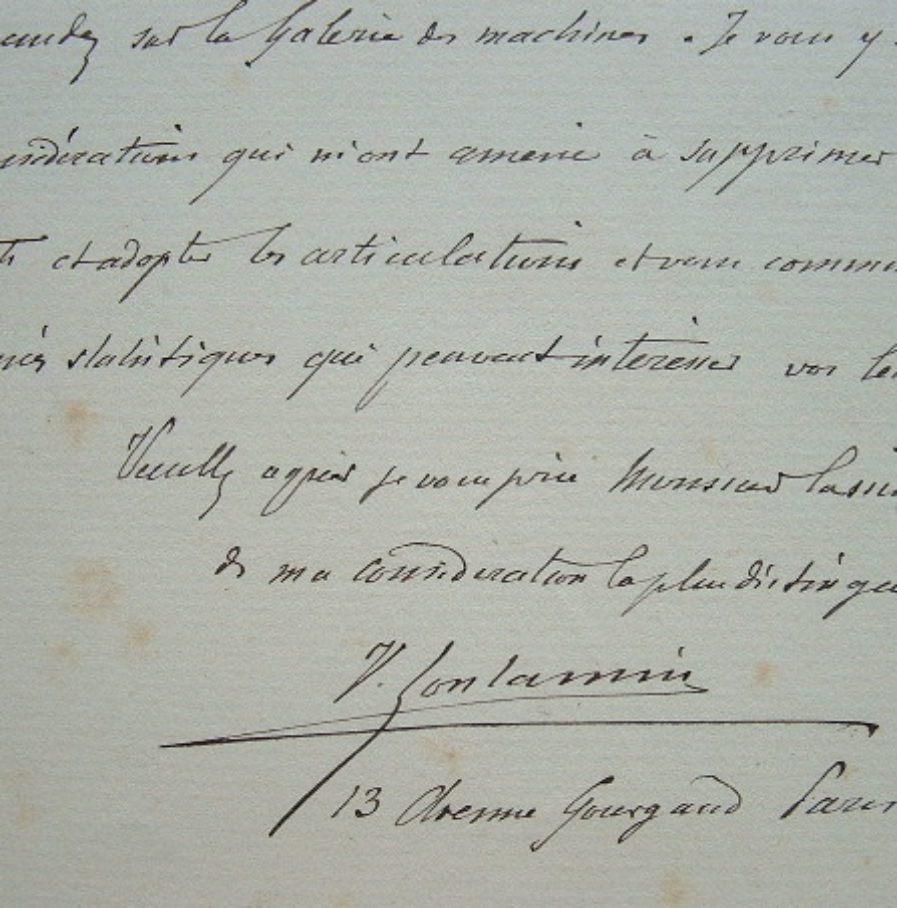 sur la Galerie des machines. Je vous y
considérations qui m'ont amené à supprimer
et adopter les articulations et vous commu
statistiques qui peuvent intéresser vos le
Veuillez agréer je vous prie Monsieur l'assu
de ma considération la plus distingué
V. Contamin
13 Avenue Gourgaud Paris